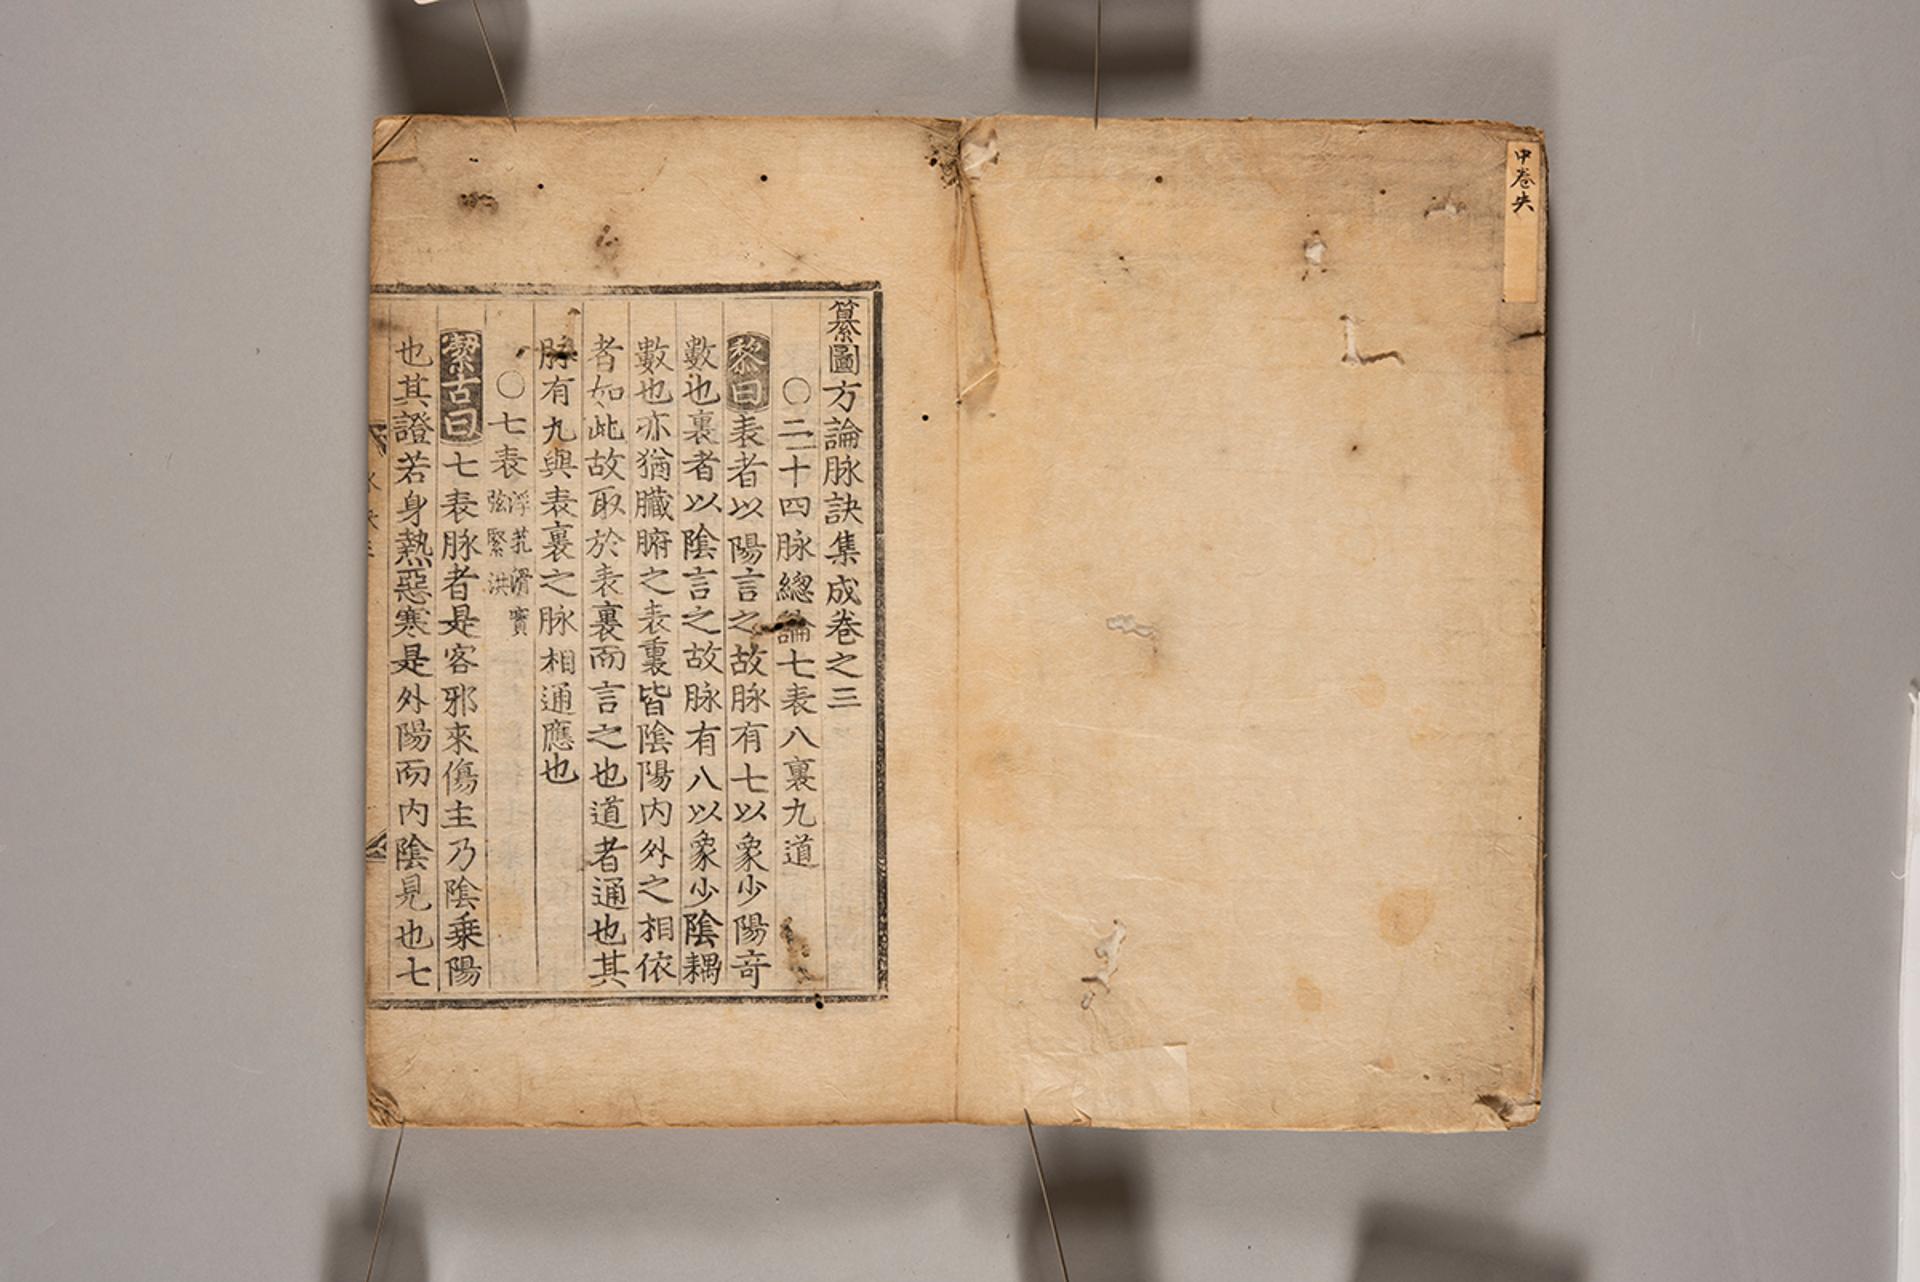 中卷失
纂圖方論脉訣集成卷之三
〇二十四脉緫論七表八裏九道
黎曰表者以陽言之故脉有七以象少陽竒
數也裏者以陰言之故脉有八以象少陰耦
數也亦猶臓腑之表裏皆陰陽内外之相依
者如此故取於表裏而言之也道者通也其
脉有九與表裏之脉相通應也
〇七表浮芤滑實弦緊洪
潔古曰七表脉者是客邪來傷主乃陰乗陽
也其證若身熱惡寒是外陽而内陰見也七